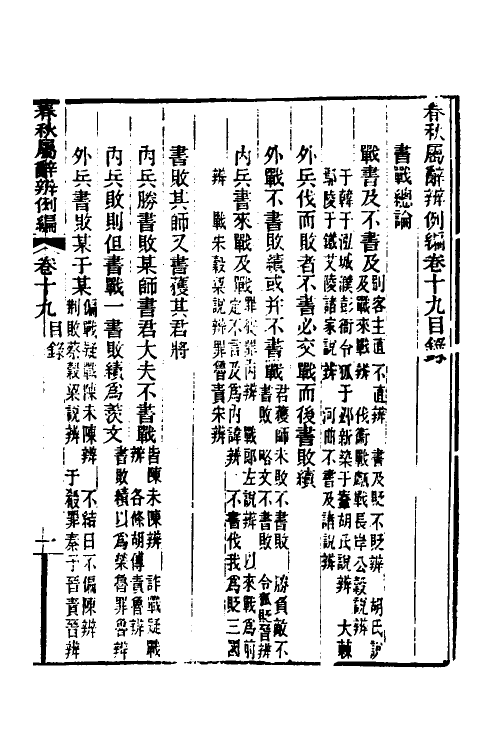 春秋屬辭辨例編卷十九目錄
書戰總論
戰書及不書及
別客主直不直辨 書及貶不貶辨 胡氏說
及戰來戰辨 伐衛戰鄘戰長岸公穀說辨
于韓于泓城濮彭衙令狐于邲新築于鞌胡氏說辨 大棘
鄢陵于鐵艾陵諸家說辨 河曲不書及諸說辨
外兵伐而敗者不書必交戰而後書敗績
外戰不書敗績或并不書戰
君獲師未敗不書敗 勝負敵不
書敗 略文不書敗 令狐貶晉辨
內兵書來戰及戰
罪從罪內辨 戰郎左說辨 以來戰為前
定不言及為內諱辨 不書伐我為貶三國
辨 戰宋穀梁說辨罪魯責宋辨
書敗其師又書獲其君將
內兵勝書敗某師書君大夫不書戰
皆陳未陳辨 詐戰疑戰
辨 各條胡傳責魯辨
內兵敗則但書戰一書敗績為羨文
書敗績以為榮魯罪魯辨
外兵書敗某于某
偏戰疑戰陳未陳辨 不結日不偏陳辨
荆敗蔡穀梁說辨 于殽罪秦于晉責晉辨
春秋屬辭辨例編
卷十九 目錄
一